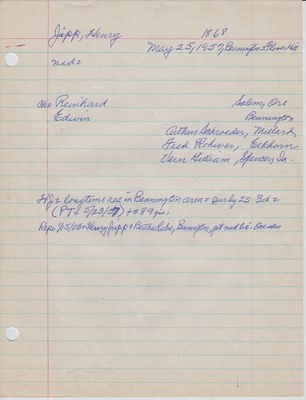 Jipp, Henry 1868
May 25, 1957, Bennington
md =
Reinhard Salem, Ore
Edwin Bennington
Arthur Schroeder, Millard
Fred Rohwer, Elkhorn
Vern Gilliam, Spencer, Ia.
H/J = longtime res in Bennington area + sur by 2S 3d =
(PT = 5/23/57) + @ 89 yrs.
Henry Jipp + Bertha, Bennington, get md lic.